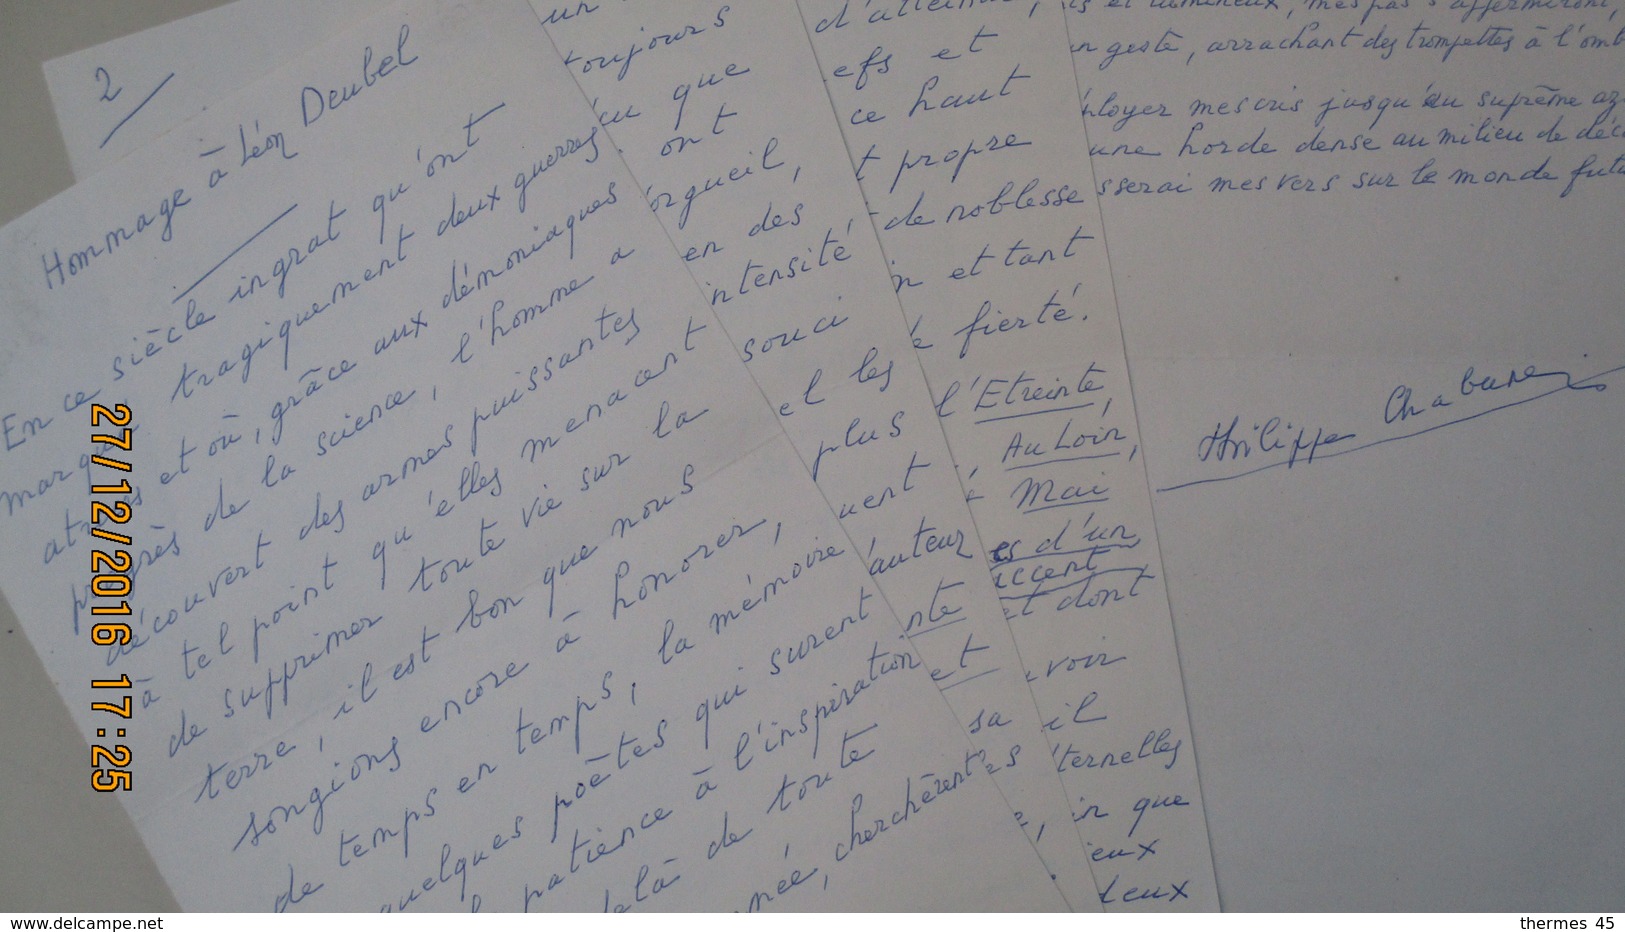 2
Hommage à Léon Deubel
En ce siècle ingrat qu'ont
marqué tragiquement deux guerres
atroces et où, grâce aux démoniaques
progrès de la science, l'homme a
découvert des armes puissantes
à tel point qu'elles menacent
de supprimer toute vie sur la
terre, il est bon que nous
songions encore à honorer,
de temps en temps, la mémoire
quelques poètes qui surent
patience à l'inspiration
delà de toute
née, cherchèrent
un
toujours
que
ont
orgueil,
en des
intensité
souci
et les
plus
auteur
et
sa
d'attein
efs et
ce haut
t propre
de noblesse
et tant
fierté.
l'Etreinte,
Au Loin,
Mai
es d'un
accent
et dont
voir
il
éternelles
que
eux
deux
et lumineux, mes pas s'affermiront,
geste, arrachant des trompettes à l'omb
ployer mes cris jusqu'au suprême az
une horde dense au milieu de déc
sserai mes vers sur le monde futu
Philippe Chabaneix
27/12/2016 17:25
www.delcampe.net
thermes 45